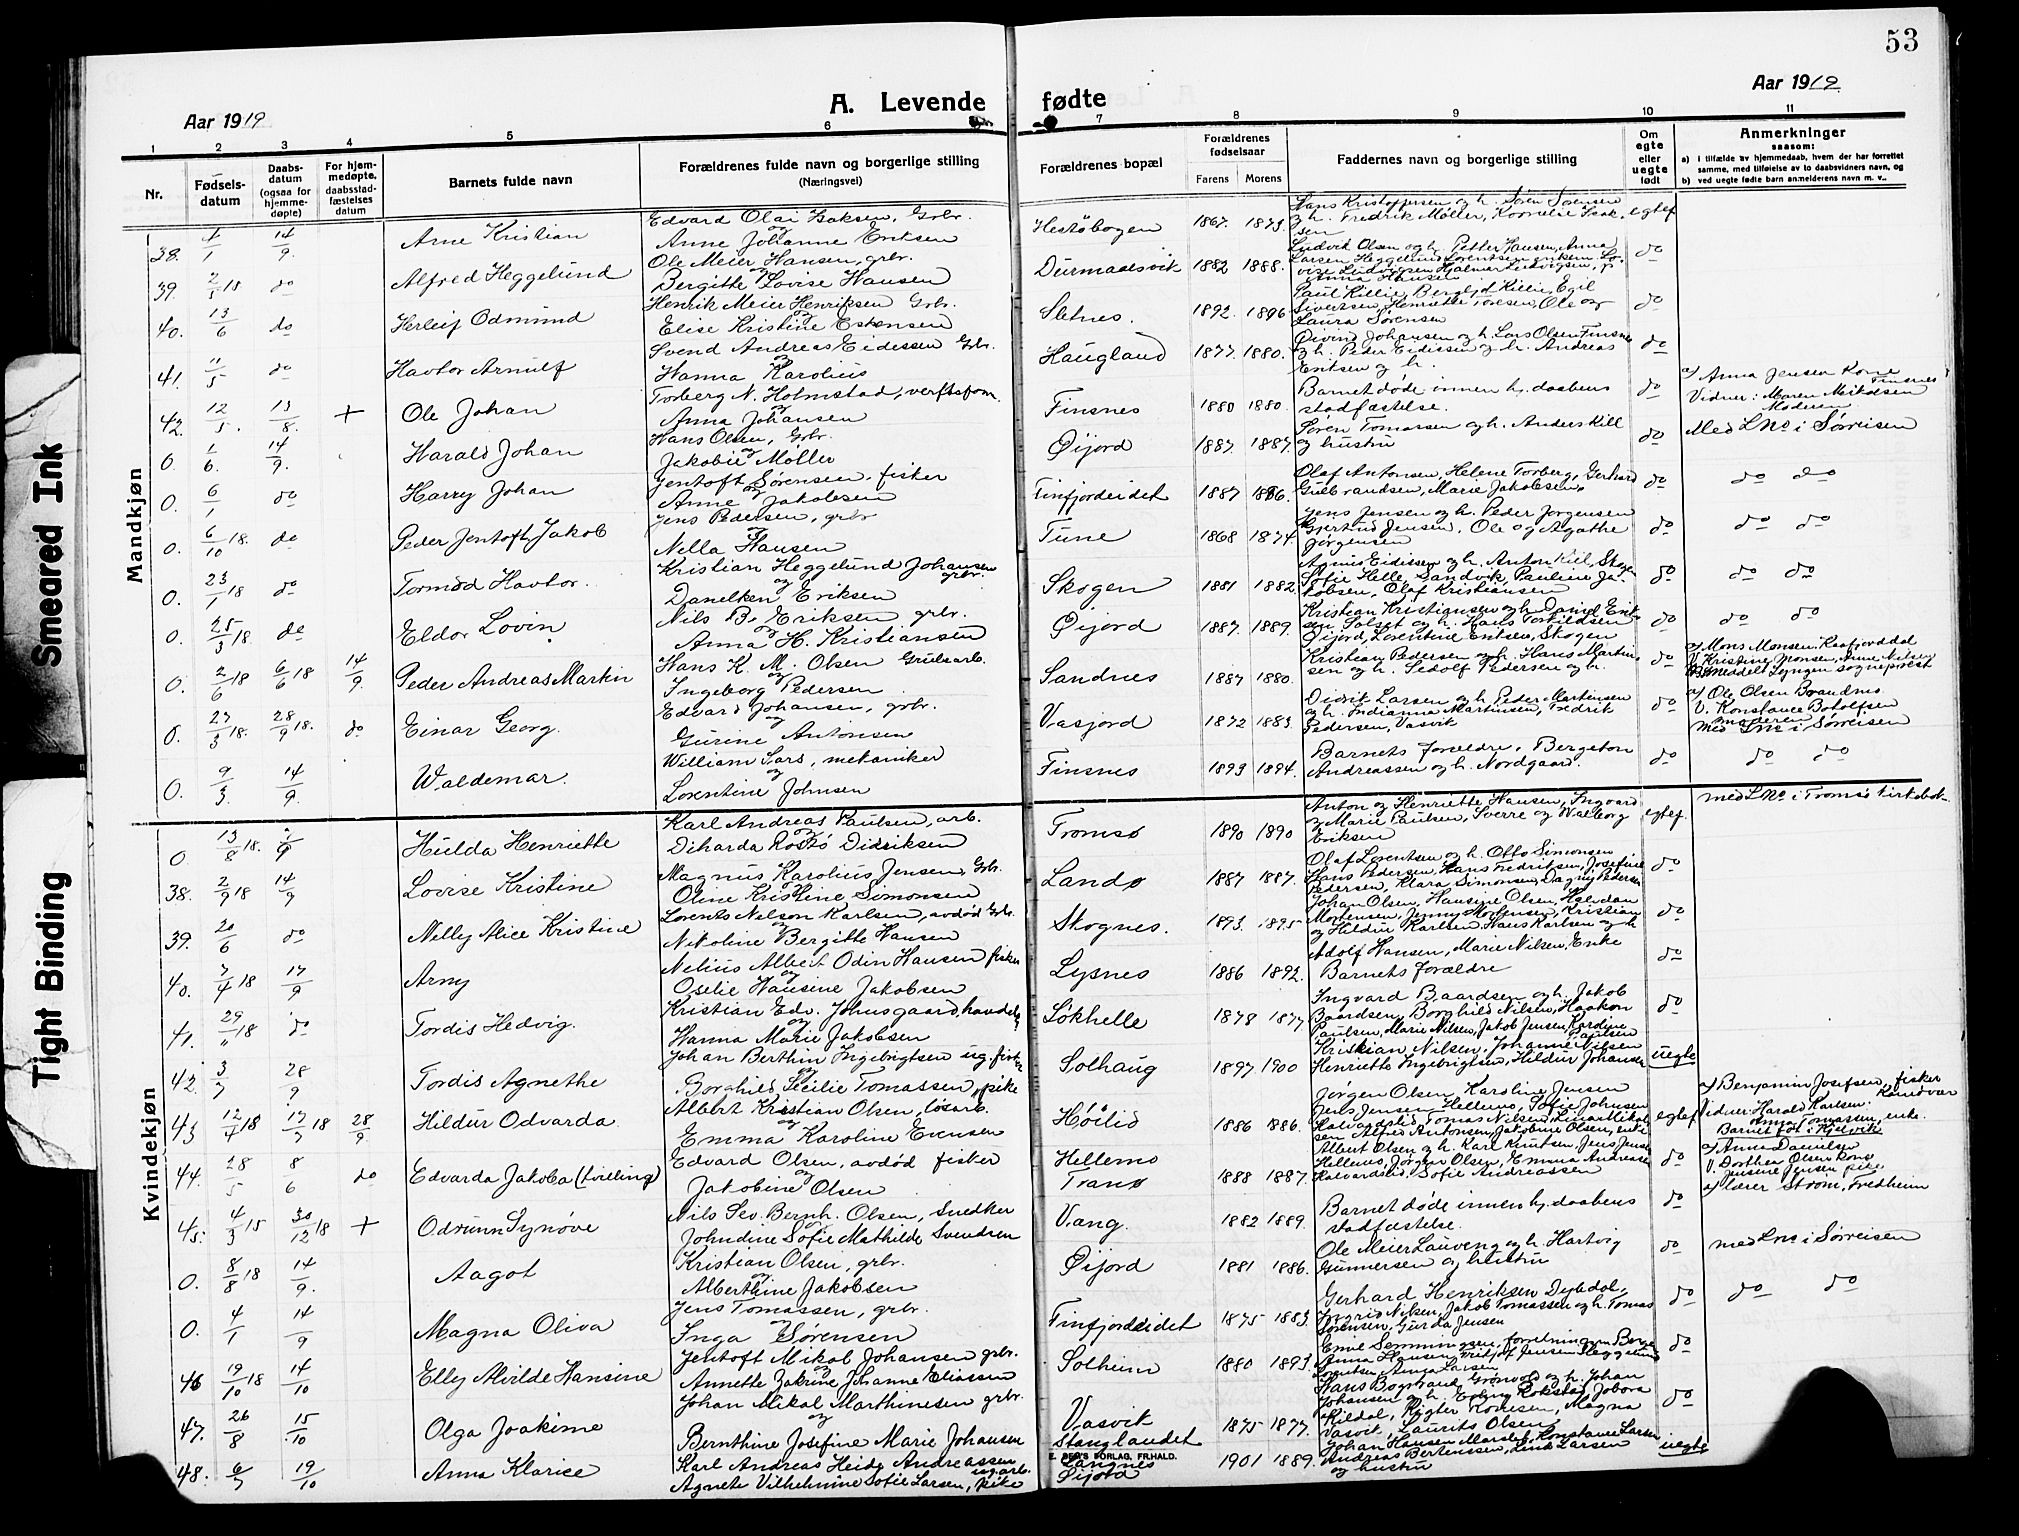 53
Aar 1919
A. Levende fødte
Aar 1919
1 2 3 4 5 6 7 8 9 10 11
Nr.
Fødsels-
datum
Daabs-
datum
(ogsaa for
hjemme-
døpte)
For hjem-
medøpte.
daabsstad-
fæstelses
datum
Barnets fulde navn
Forældrenes fulde navn og borgerlige stilling
(Næringsvei)
Forældrenes bopæl
Forældrenes
fødselsaar
Farens Morens
Faddernes navn og borgerlige stilling
Om
egte
eller
uegte
født
Anmerkninger
saasom:
a) i tilfælde av hjemmedaab, hvem der har forrettet
samme, med tilføielse av to daabsvidners navn, og
b) ved uegte fødte barn anmelderens navn m. v..
Smeared Ink
Tight Binding
Mandkjøn
38. 4/1 14/9. Arne Kristian
Edvard Olai Isaksen, Grbr.
og
Anne Johanne Eriksen
Hestøbogen 1867. 1873.
Hans Kristoffersen og h. Sören Sörensen
og h. Fredrik Møller, Kornelie Isak-
sen
egtef
39. 2/5 18 do Alfred Heggelund
Ole Meier Hansen, grbr.
og
Bergitte Lovise Hansen
Durmaalsvik 1882 1888.
Ludvik Olsen og h. Petter Hansen, Anna
Larsen Heggelund, Lorentsen enkem. Lo-
vise Ludvigsen, Hjalmar Ludvigsen,
Anna Hansen
do
40. 13/6 do Herleif Odmund
Henrik Meier Henriksen Grbr.
og
Elise Kristine Estensen
Sletnes. 1892. 1896
Paul Killie, Bergljot Killie, Egil
Sivertsen, Henriette Toresen, Ole og
Laura Sørensen
do
41. 11/5 do Havtor Arnulf
Svend Andreas Eidissen Grbr.
og
Hanna Karolius
Haugland 1877. 1880.
Øivind Johansen og h. Lars Olsen Finsnes
og h. Peder Eidissen og h. Andreas
Eriksen og h.
do
42. 12/5. 13/8. + Ole Johan
Torberg N. Holmstad, verftsfom.
og
Anna Johansen
Finsnes 1880 1880.
Barnet døde innen hj. daabens
stadfæstelse.
do
a/ Anna Jensen Kone
Finsnes
Vidner: Maren Mikalsen
Moderen
0. 1/6. 14/9. Harald Johan
Hans Olsen, Grbr.
og
Jakobie Møller
Øijord 1887. 1887.
Søren Tomassen og h. Anders Kill
og hustru
do
Med L No i Sørreisen
0. 6/1 do Harry Johan
Jentoft Sørensen, fisker
og
Anne Jakobsen
Finfjordeidet 1887 1886.
Olaf Antonsen, Helene Torberg, Gerhard
Gulbrandsen, Marie Jakobsen,
do
do do
0. 6/10 18. do Peder Jentoft Jakob
Jens Pedersen, grbr
og
Nella Hansen
Tune 1868 1874.
Jens Jensen og h. Peder Jørgensen
Gjertrud Jensen, Ole og Agathe
Jørgensen
do
do do
0. 23/1 18 do Tormod Havtor.
Kristian Heggelund Johansen
grbr.
og
Danelken Eriksen
Skogen 1881 1882
Agnus Eidissen og h. Anton Kiil, Skogen
Sofie Helle, Sandvik, Pauline Ja-
kobsen, Olaf Kristiansen
do
do do
0. 25/3 18. do Eldor Lovin
Nils B. Eriksen grbr.
og
Anna H. Kristiansen
Øijord 1887. 1889.
Kristian Kristiansen og h. Daniel Erik-
sen, Solsgt og h. Hans Torkildsen
Øijord, Lorentine Eriksen, Skogen
do
do do
0. 2/6 18 6/6 18 14/9. Peder Andreas Martin
Hans K. M. Olsen Grubearb.
og
Ingeborg Pedersen
Sandnes 1887 1880.
Kristian Pedersen og h. Hans Martin-
sen og h. Sedolf Pedersen og h.
do
a/ Mons Monsen, Kaafjorddal
V. Kristine Monsen, Anne Nilsen
Bs. meddelt Lyngen sogneprest
0. 27/3 18. 28/9 18. do Einar Georg.
Edvard Johansen, grbr.
og
Gurine Antonsen
Vasjord 1872 1883.
Didrik Larsen og h. Peder Martinsen
og h. Indianna Martinsen, Fredrik
Pedersen, Vasvik
do
a/ Ole Olsen Brandnes
V. Konstance Botolfsen
moderen
Med L No i Sørreisen
0. 9/3. 14/9. Waldemar.
William Lars, mekaniker
og
Lorentine Johnsen
Finsnes 1893 1894.
Barnets forældre, Bergeton
Andreassen og h. Nordgaar.
do
do do
Kvindekjøn
0. 13/8 18. Hulda Henriette
Karl Andreas Paulsen, arb.
og
Diharda Rostø Didriksen
Tromsø 1890 1890
Anton og Henriette Hansen, Ingvard
og Marie Paulsen, Sverre og Walborg
Eriksen
egtef.
med L No i Tromsø kirkebok.
38. 2/9 18 14/9 Lovise Kristine
Magnus Karolius Jensen, Grbr.
og
Oline Kristine Simonsen
Landø 1887 1887.
Olaf Lorentsen og h. Otto Simonsen
Hans Pedersen, Hans Fredriksen, Josefine
Pedersen, Klara Simonsen, Dagny Pedersen
do
39. 20/6 do Nelly Alice Kristine
Lorents Nelson Karlsen, avdød Grbr.
og
Nikoline Bergitte Hansen
Skognes. 1893. 1895
Johan Olsen, Hansine Olsen, Halvdan
Mortensen, Jenny Mortensen, Kristian
og Hildur Karlsen, Hans Karlsen og h
do
40. 7/4 18 17/9 Arny
Nelius Albert Odin Hansen fisker
og
Oselie Hansine Jakobsen
Lysnes 1886 1892.
Adolf Hansen, Marie Nilsen, Enke
Barnets forældre
do
41. 29/11 18 do Tordis Hedvig.
Kristian Edv. Johnsgaard, handels
og
Hanna Marie Jakobsen
Løkhelle 1878 1877
Ingvard Baardsen og h. Jakob
Baardsen, Borghild Nilsen, Haakon
Paulsen, Marie Nilsen, Jakob Jensen, Karoline
Paulsen
do
42. 3/7 28/9. Tordis Agnethe
Johan Berthin Ingebrigtsen ug. fisker
og
Borghild Cecilie Tomassen, pike
Solhaug 1897 1900
Kristian Nilsen, Johanne Nilsen
Henriette Ingebrigtsen, Hildur Johansen
uegte
43 12/4 18 17/7 18 28/9. Hildur Odvarda.
Albert Kristian Olsen, løsarb.
og
Emma Karoline Evensen
Høilid 1886 1886.
Jørgen Olsen, Karoline Jensen
Jens Jensen Hellemo, Sofie Johnsen
Halvardslid, Tomas Nilsen, Lina Mikal-
sen, Alfred Antonsen, Jakobine Olsen, enke
egtef
a/ Benjamin Josefsen, fisker
Vidner: Harald Karlsen
Anna Tomassen, enke.
Barnet føt i Kjelvik
44. 28/5 8/6 do Edvarda Jakoba (tvilling)
Edvard Olsen, avdød fisker
og
Jakobine Olsen
Hellemo
Tranø 1888 1887.
Albert Olsen og h. Karl Knutsen, Jens Jensen
Hellemo, Jørgen Olsen, Emma Andreassen
Halvardslid, Sofie Andreassen
do
a/ Anna Danielsen
V. Dorthea Olsen kone
Jensine Jensen pike
45. 4/3 15 30/12 18 + Odrunn Synøve
Nils Sev. Bernh. Olsen, snedker
Johndine Sofie Mathilde Svendsen
Vang. 1882 1889.
Barnet døde innen hj. daabens
stadfæstelse.
do
a/ lærer Strøm, Fredheim
0. 8/8 18 14/9. Aagot
Kristian Olsen, grbr.
og
Alberthine Jakobsen
Øijord 1881 1886.
Ole Meier Lauveng og h. Hartvig
Gunnersen og hustru
do
med L No i Sørreisen
0. 4/1 14/9 Magna Oliva
Jens Tomassen, grbr.
og
Inga Sørensen
Finfjordeidet 1875 1883
Gerhard Henriksen Dybdal,
Ingrid Nilsen, Jakob Tomassen og h. Tomas
Sørensen, Gurda Jensen
do
do do
46 19/10 18 14/10 Elly Alvilde Hansine
Jentoft Mikal Johansen grbr.
og
Annette Zakrine Johanne Eliassen
Solheim 1880 1893
Emil Semmingsen, forretningsm. Berge
Anna Hansen, Fridjof Jensen Heggelund
Lorentse Anna Larsen
do
47. 26/8 15/10 Olga Joakime
Johan Mikal Marthinesen grbr.
og
Bernthine Josefine Marie Johansen
Vasvik 1875 1877.
Hans Bogstrand, Grønvold og h. Johan
Johansen og h. Erling Rokstad, Jobora
Kildal, Rigter Kornesen, Magna
Vasvik, Laurits Olsen
do
48. 6/7 19/10 Anna Klarice
Karl Andreas Heide Andreassen
ug. arb.
Agnete Vilhelmine Sofie Larsen, pike
Stanglandet
Langnes
Øijord
1901 1889.
Johan Hansen Marslet, Konstance Larsen
Andreas Bertenssen, Link Larsen
og hustru
uegte
E. SEM'S FORLAG, FR.HALD.